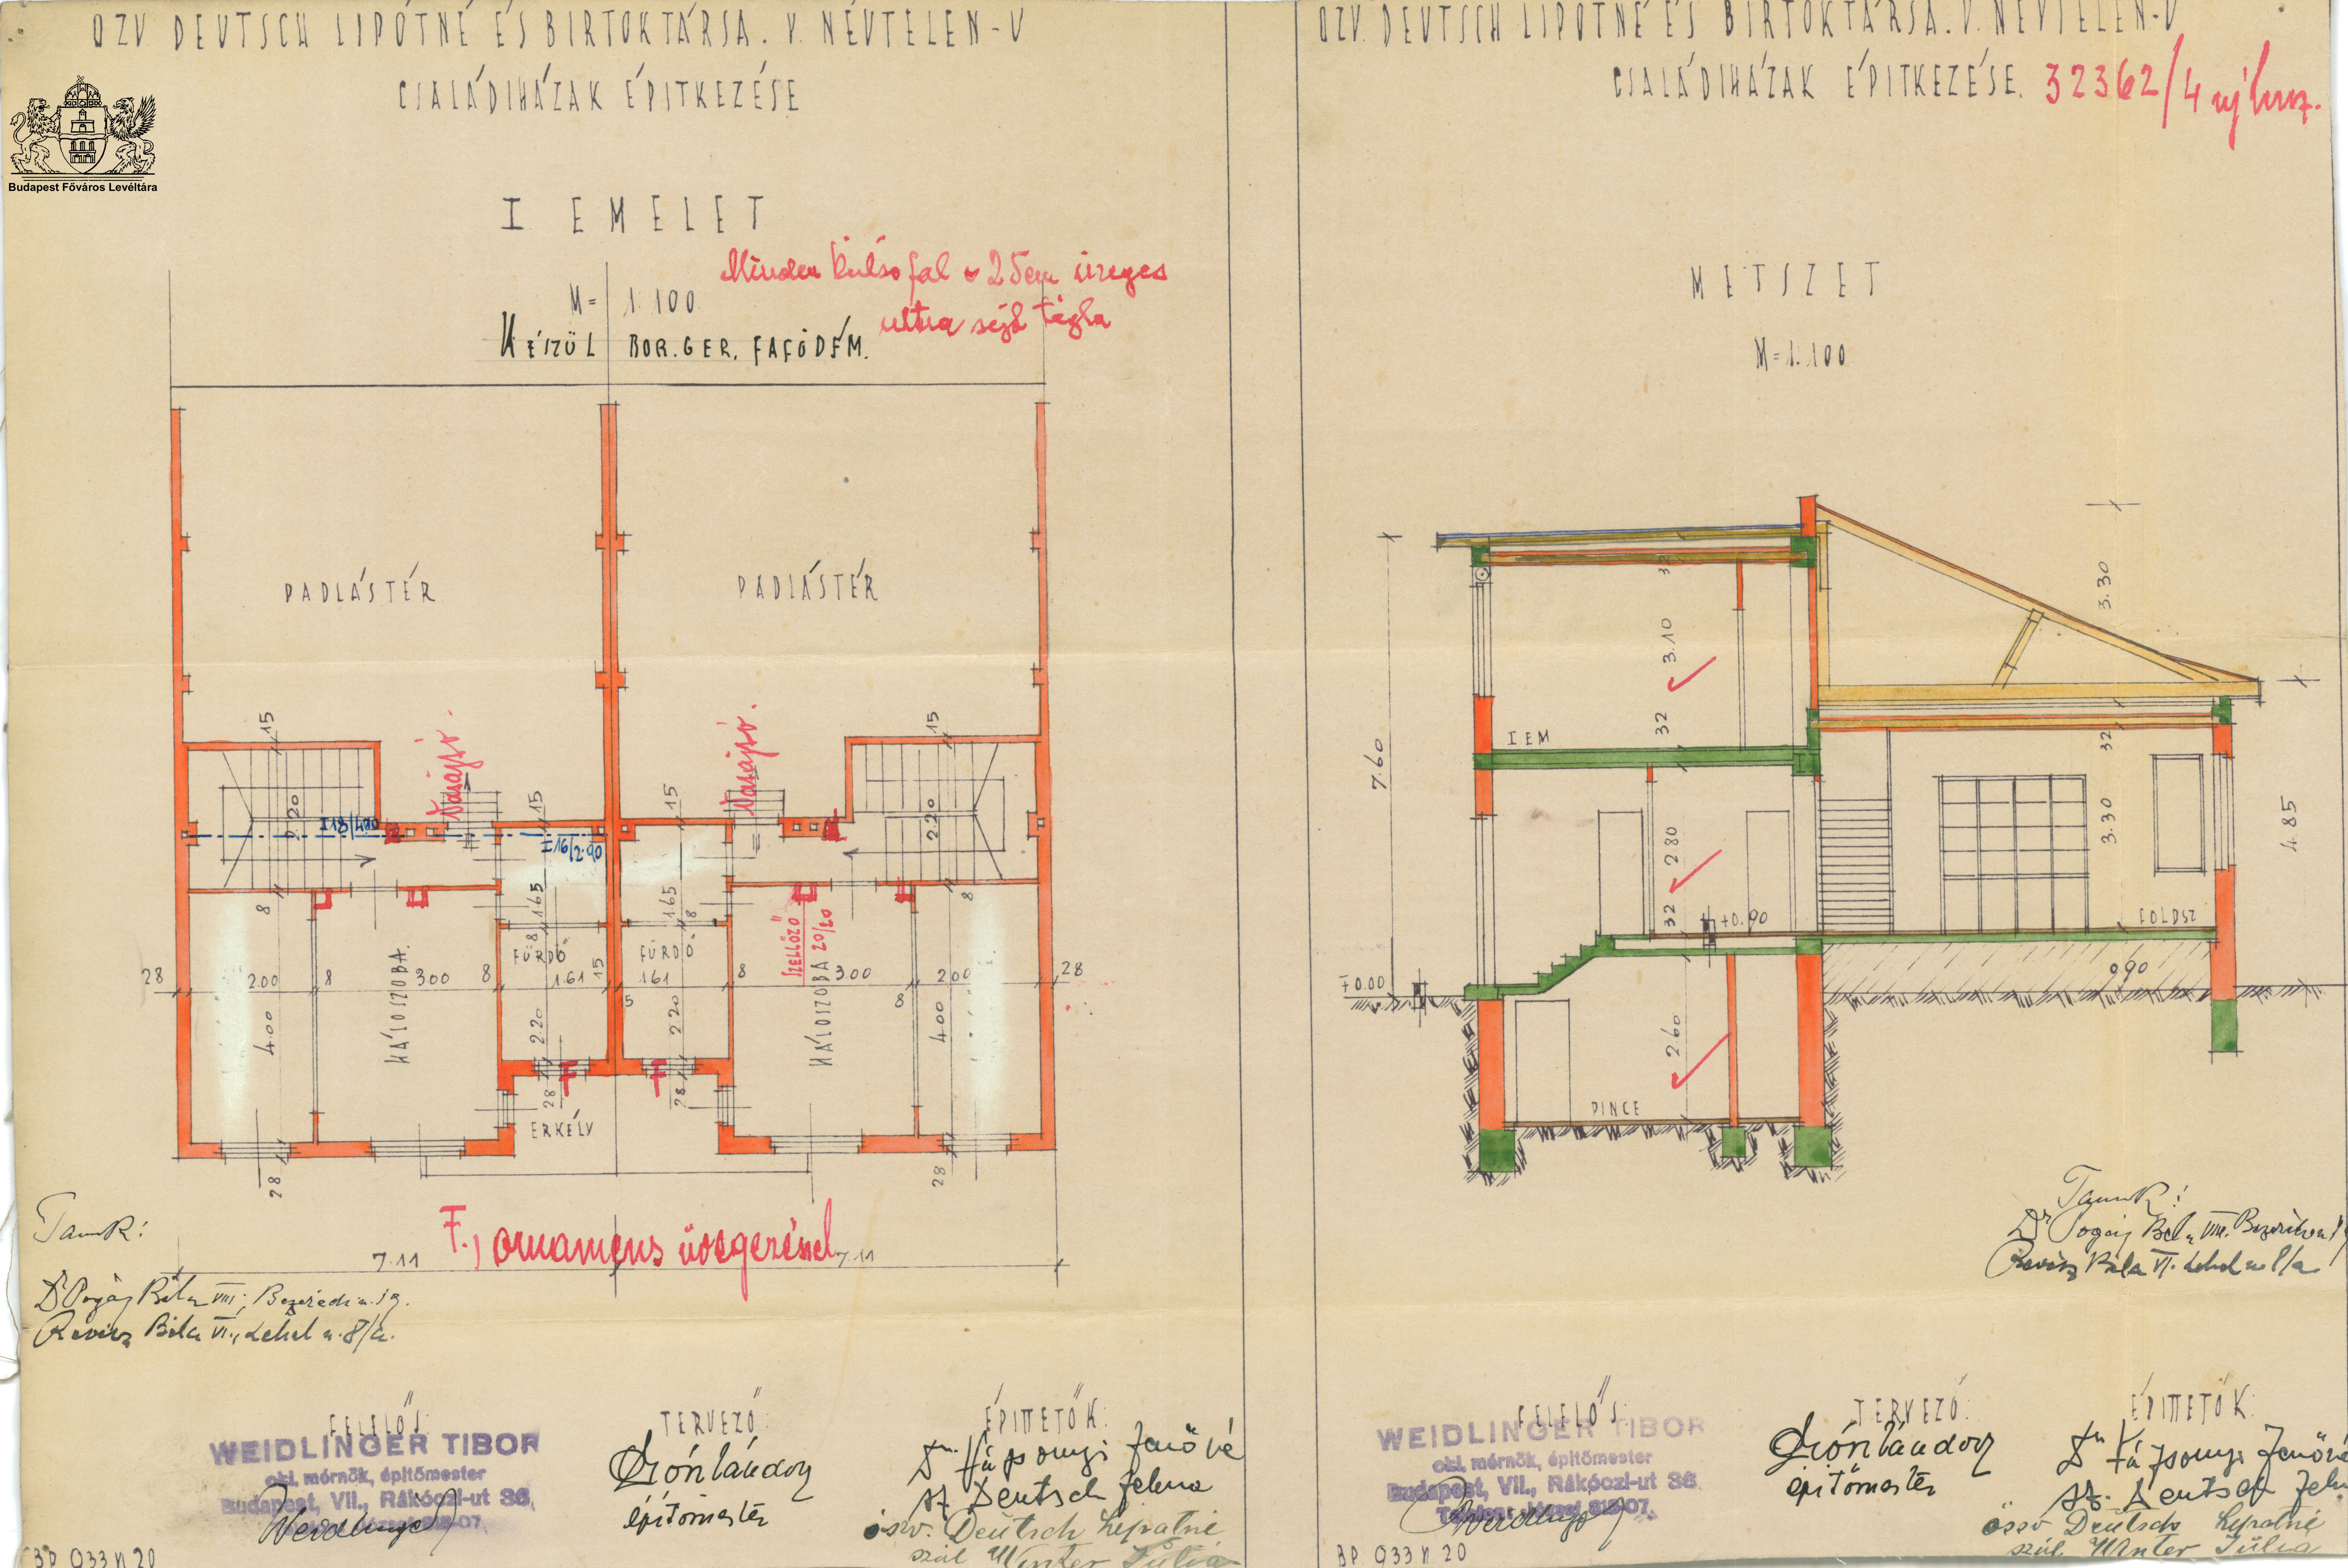 ÖZV DEUTSCH LIPÓTNÉ ÉS BIRTOKTÁRSA. V. NÉVTELEN-U
CSALÁDIHÁZAK ÉPITKEZÉSE
Budapest Főváros Levéltára
I EMELET
Minden külső fal 25cm üreges
ultra tégla
M= 1:100
KÉSZÜL BOR.GER. FAFÖDÉM.
PADLÁSTÉR
PADLÁSTÉR
15
15
Vasajtó.
Vasajtó.
15
15
2.20
2.20
I 18/4.90
I 16/2.90
8
1.65
1.65
8
8
8
8
SZELLŐZŐ
20/20
FÜRDŐ
FÜRDŐ
HÁLÓSZOBA.
HÁLÓSZOBA
28
2.00
8
3.00
8
1.61
15
1.61
8
3.00
2.00
28
5
8
4.00
2.20
2.20
4.00
F
F
28
28
ERKÉLY
28
28
Tanúk:
7.11
F., ornamens üvegezéssel
7.11
Béla VIII.,
Béla VI., Lehel u. 8/a.
FELELŐS:
TERVEZŐ:
ÉPITTETŐK:
WEIDLINGER TIBOR
okl. mérnök, építőmester
Budapest, VII., Rákóczi-ut 36.
építőmester
Dr. Jenőné
sz. Deutsch Jelena
özv. Deutsch Lipótné
szül. Winter Júlia
BP 933 II 20
ÖZV. DEUTSCH LIPÓTNÉ ÉS BIRTOKTÁRSA. V. NÉVTELEN-U
CSALÁDIHÁZAK ÉPITKEZÉSE.
32362/4 új hrsz.
METSZET
M=1:100
32
3.30
3.10
7.60
32
I EM
32
2.80
3.30
4.85
32
+0.90
FÖLDSZ
∓0.00
0.90
2.60
PINCE
Tanúk:
Dr Béla VIII.
Béla VI. Lehel u 8/a
FELELŐS:
TERVEZŐ:
ÉPITTETŐK:
WEIDLINGER TIBOR
okl. mérnök, építőmester
Budapest, VII., Rákóczi-ut 36.
építőmester
Dr Jenőné
sz. Deutsch
özv Deutsch Lipótné
szül. Winter Júlia
BP 933 II 20